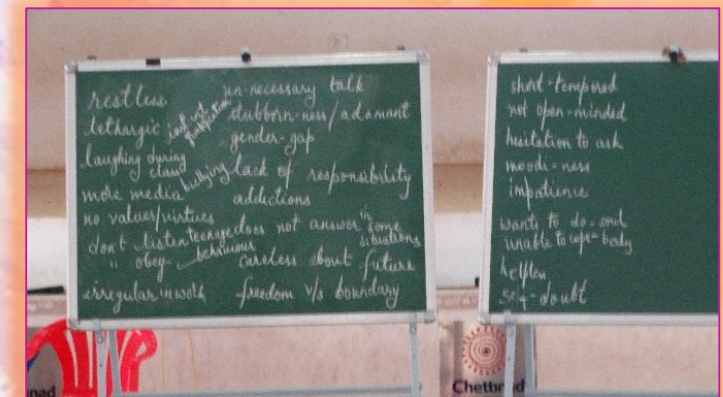 restless
lethargic
laughing during class
more media
no values/virtues
don't listen
" obey
irregular in work
instant gratification
bullying
teenage behaviour
un-necessary talk
stubborn-ness/adamant
gender-gap
lack of responsibility
addictions
does not answer in some situations
careless about future
freedom v/s boundary
short-tempered
not open-minded
hesitation to ask
moodi-ness
impatience
wants to do - soul
unable to cope = body
helpless
self-doubt